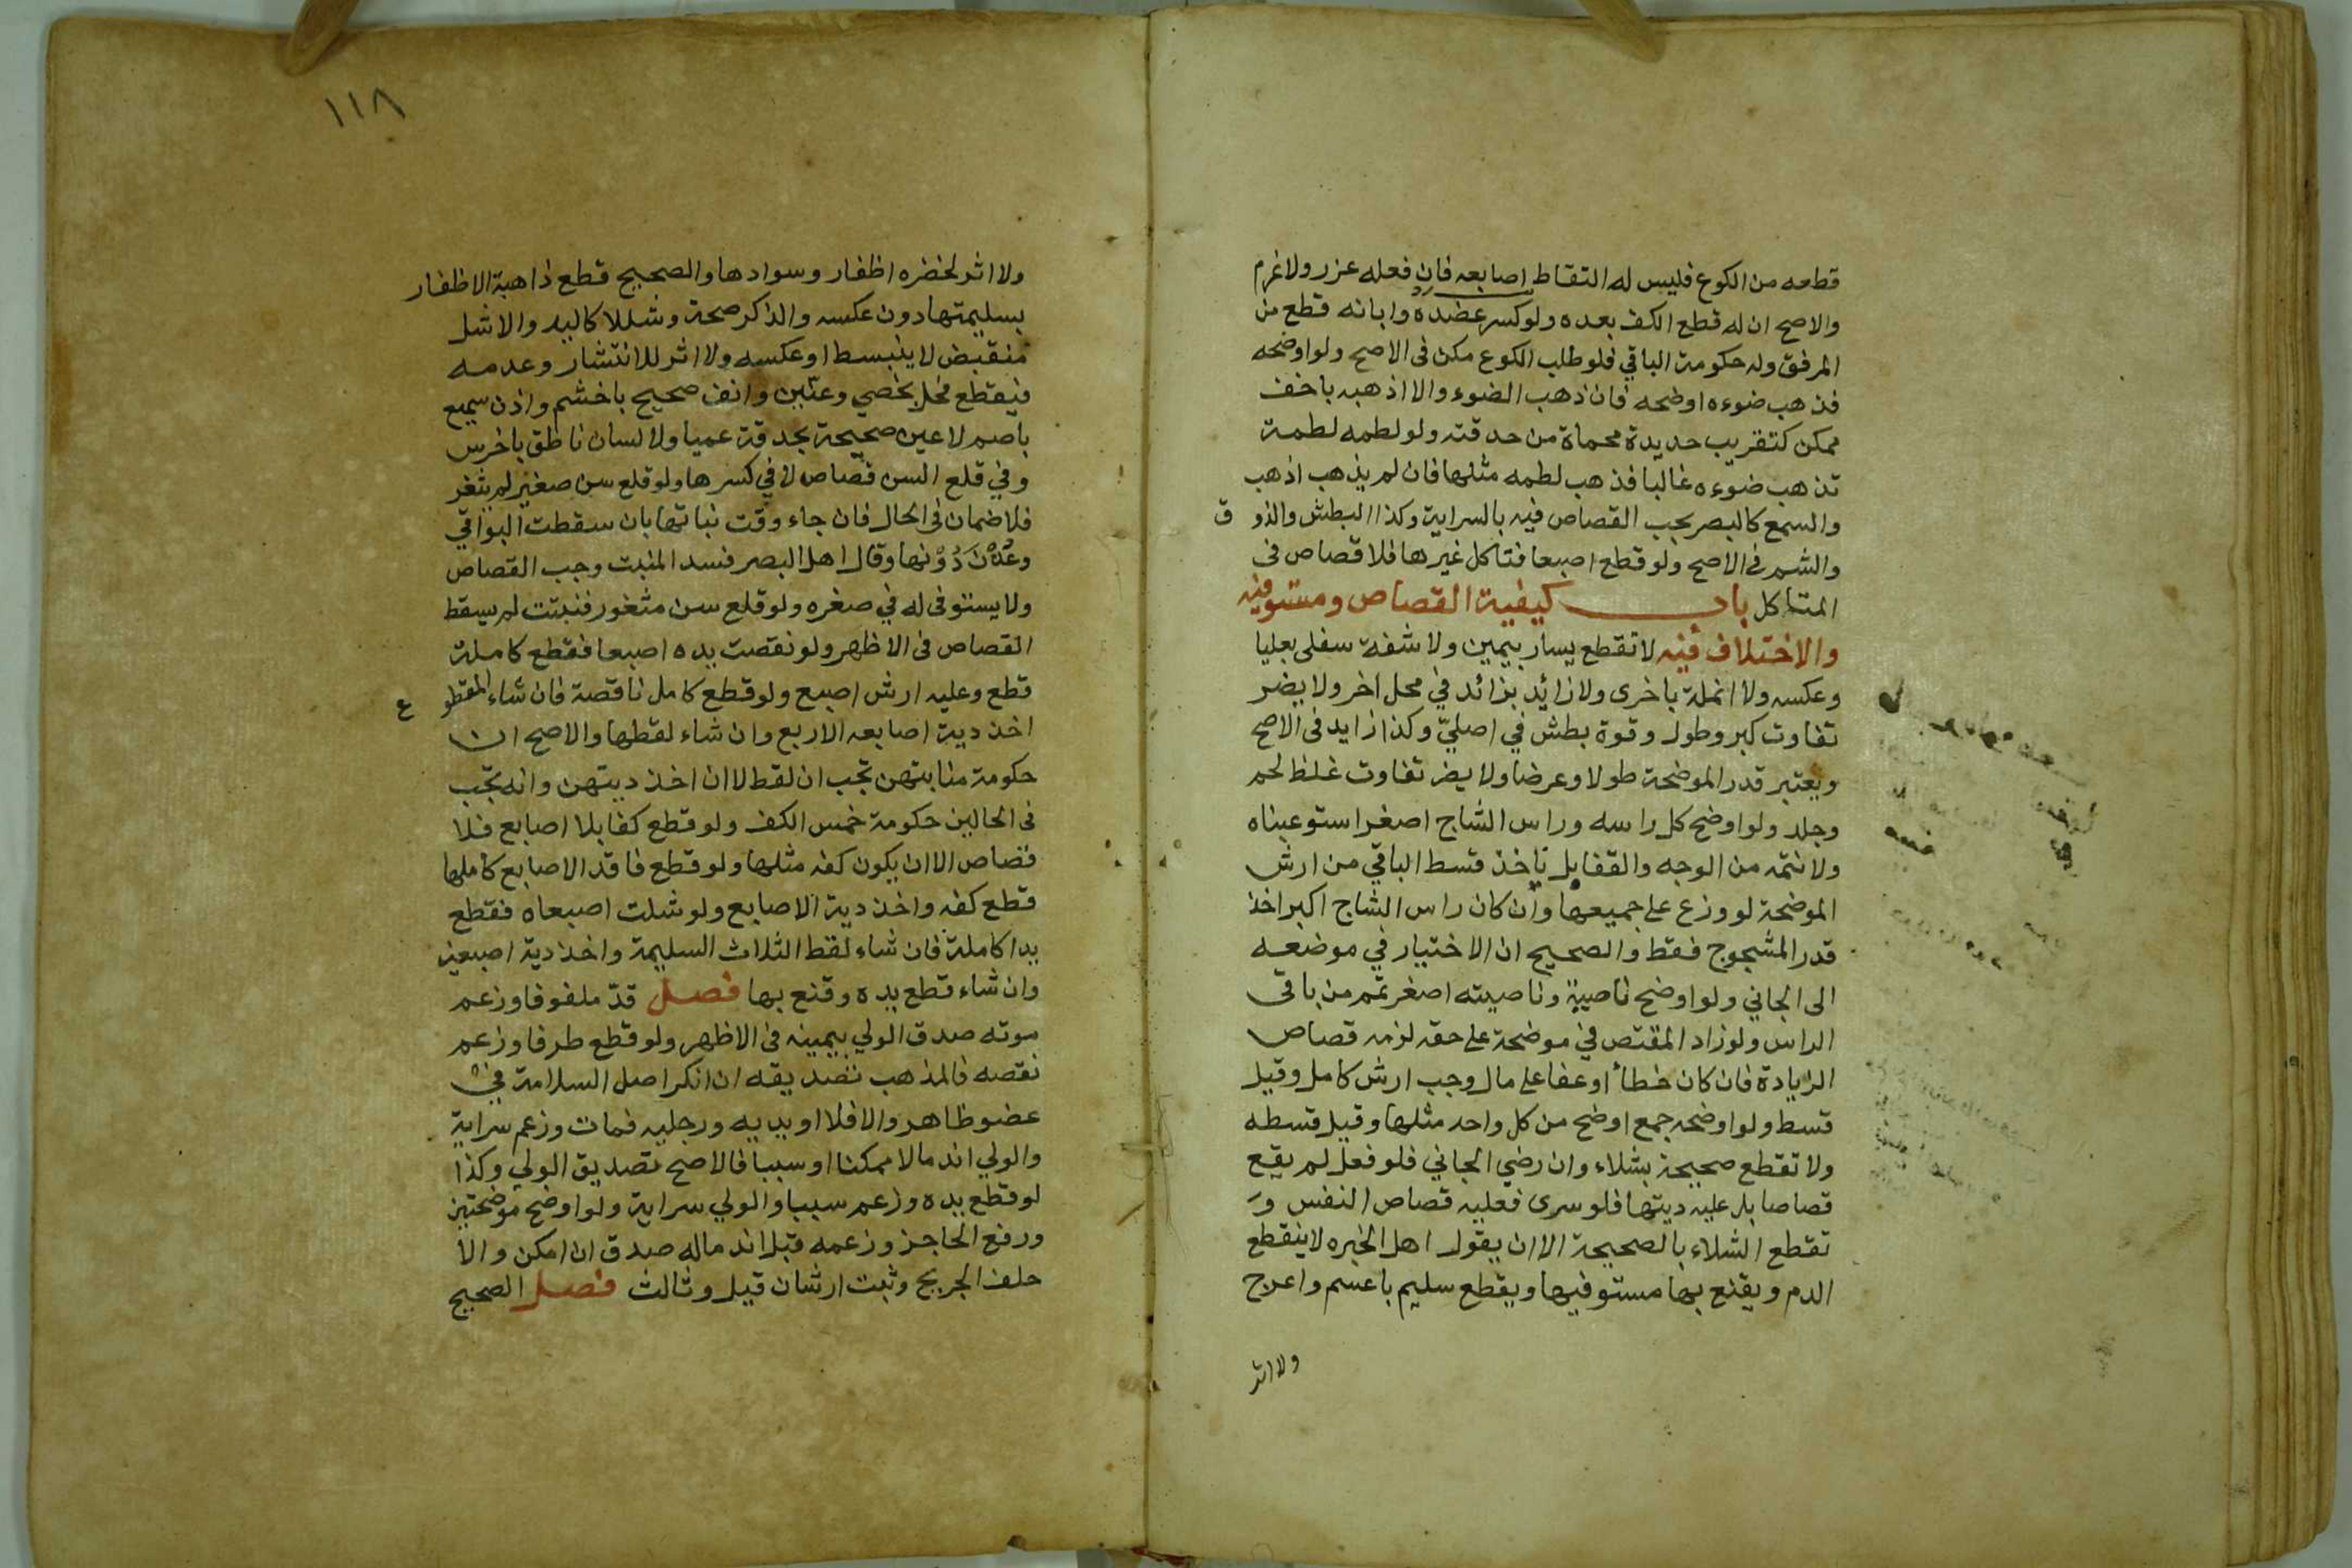 قطعه من الكوع فليس له التقاط اصابعه فان فعله عزر ولا غرم
والاصح ان له قطع الكف بعده ولو كسر عضده وابانه قطع من
المرفق وله حكومة الباقي فلو طلب الكوع مكن فى الاصح ولو اوضحه
فذهب ضوءه اوضحه فان ذهب الضوء والا اذهبه باخف
ممكن كتقريب حديدة محماة من حدقته ولو لطمه لطمة
تذهب ضوءه غالبا فذهب لطمه مثلها فان لم يذهب اذهب
والسمع كالبصر يجب القصاص فيه بالسراية وكذا البطش والذوق
والشم فى الاصح ولو قطع اصبعا فتاكل غيرها فلا قصاص فى
المتاكل باب كيفية القصاص ومستوفيه
والاختلاف فيه لا تقطع يسار بيمين ولا شفة سفلى بعليا
وعكسه ولا انملة باخرى ولا زائد بزائد في محل اخر ولا يضر
تفاوت كبر وطول وقوة بطش في اصلي وكذا زايد فى الاصح
ويعتبر قدر الموضحة طولا وعرضا ولا يضر تفاوت غلظ لحم
وجلد ولو اوضح كل راسه وراس الشاج اصغر استوعبناه
ولا نتمه من الوجه والقفا بل ناخذ قسط الباقي من ارش
الموضحة لو وزع على جميعها وان كان راس الشاج اكبر اخذ
قدر المشجوج فقط والصحيح ان الاختيار في موضعه
الى الجاني ولو اوضح ناصية وناصيته اصغر تمم من باقى
الراس ولو زاد المقتص في موضحة على حقه لزمه قصاص
الزيادة فان كان خطأ او عفا على مال وجب ارش كامل وقيل
قسط ولو اوضحه جمع اوضح من كل واحد مثلها وقيل قسطه
ولا تقطع صحيحة بشلاء وان رضي الجاني فلو فعل لم يقع
قصاصا بل عليه ديتها فلو سرى فعليه قصاص النفس و
تقطع الشلاء بالصحيحة الا ان يقول اهل الخبره لا ينقطع
الدم ويقنع بها مستوفيها ويقطع سليم باعسم واعرج
ولا اثر
١١٨
ولا اثر لخضره اظفار وسوادها والصحيح قطع ذاهبة الاظفار
بسليمتها دون عكسه والذكر صحة وشللا كاليد والاشل
منقبض لا ينبسط او عكسه ولا اثر للانتشار وعدمه
فيقطع فحل بخصي وعنين وانف صحيح باخشم واذن سميع
باصم لا عين صحيحة بحدقة عميا ولا لسان ناطق باخرس
وفي قلع السن قصاص لا في كسرها ولو قلع سن صغير لم يثغر
فلا ضمان فى الحال فان جاء وقت نباتها بان سقطت البواقي
وعدن دونها وقال اهل البصر فسد المنبت وجب القصاص
ولا يستوفى له في صغره ولو قلع سن مثغور فنبتت لم يسقط
القصاص فى الاظهر ولو نقصت يده اصبعا فقطع كاملة
قطع وعليه ارش اصبع ولو قطع كامل ناقصة فان شاء المقطوع
اخذ دية اصابعه الاربع وان شاء لقطها والاصح ان
حكومة منابتهن تجب ان لقط لا ان اخذ ديتهن وانه تجب
فى الحالين حكومة خمس الكف ولو قطع كفا بلا اصابع فلا
قصاص الا ان يكون كفه مثلها ولو قطع فاقد الاصابع كاملها
قطع كفه واخذ دية الاصابع ولو شلت اصبعاه فقطع
يدا كاملة فان شاء لقط الثلاث السليمة واخذ دية اصبعين
وان شاء قطع يده وقنع بها فصل قد ملفوفا وزعم
موته صدق الولي بيمينه فى الاظهر ولو قطع طرفا وزعم
نقصه فالمذهب تصديقه ان انكر اصل السلامة في
عضو ظاهر والا فلا او يديه ورجليه فمات وزعم سراية
والولي اندمالا ممكنا او سببا فالاصح تصديق الولي وكذا
لو قطع يده وزعم سببا والولي سراية ولو اوضح موضحتين
ورفع الحاجز وزعمه قبل اندماله صدق ان امكن والا
حلف الجريح وثبت ارشان قيل وثالث فصل الصحيح